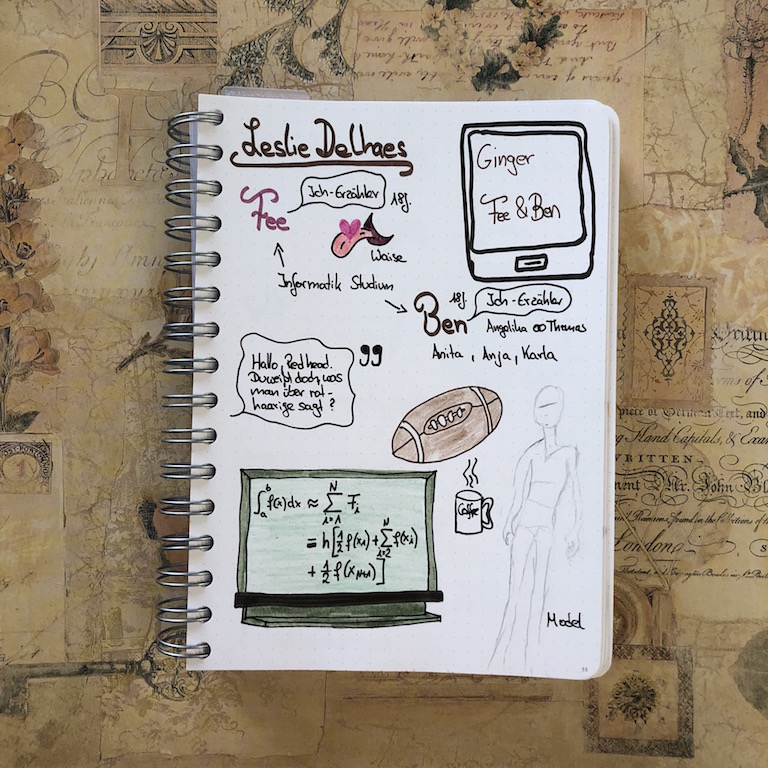 Leslie Delhaes
Ginger
Fee & Ben
Fee
Ich-Erzähler
18J.
Waise
Informatik Studium
Ben
18J.
Ich-Erzähler
Angelika ∞ Thomas
Anita, Anja, Karla
Hallo, Redhead.
Du weißt doch, was
man über rot-
haarige sagt?
∫ₐᵇ f(x)dx ≈ ∑ᵢ₌₁ᴺ Fᵢ
= h[½ f(x₁) + ∑ᵢ₌₂ᴺ f(xᵢ)
+ ½ f(x_{N+1})]
Coffee
Model